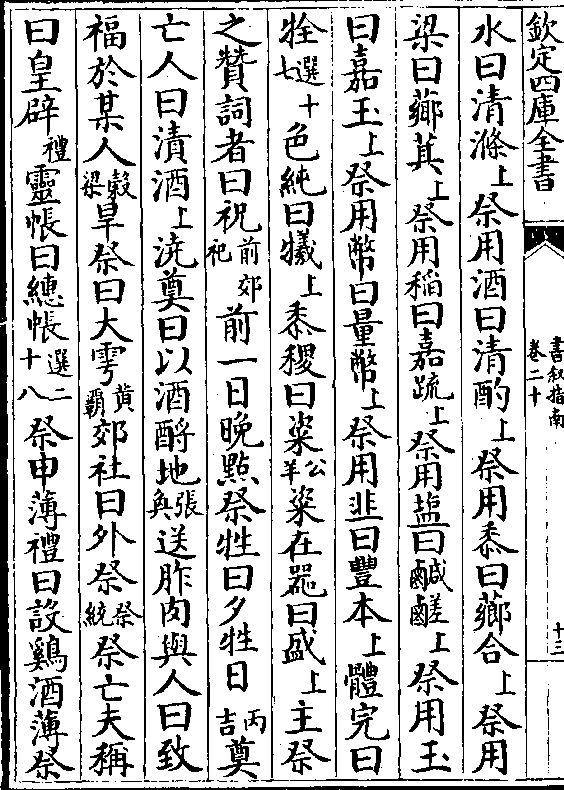 欽定四庫全書
書叙指南
卷二十
十三
水曰清滌上祭用酒曰清酌上祭用黍曰薌合上祭用
梁曰薌萁上祭用稻曰嘉疏上祭用盐曰鹹鹺上祭用玉
曰嘉玉上祭用幣曰量幣上祭用韭曰豐本上體完曰
牷選十七色純曰犧上黍稷曰粢公羊粢在器曰盛上主祭
之贊詞者曰祝前郊祀前一日晚點祭牲曰夕牲日丙吉奠
亡人曰漬酒上澆奠曰以酒酹地張奐送胙肉與人曰致
福於某人穀梁旱祭曰大雩黄霸郊社曰外祭祭統祭亡夫稱
曰皇辟禮靈帳曰繐帳選二十八祭申薄禮曰設鷄酒薄祭